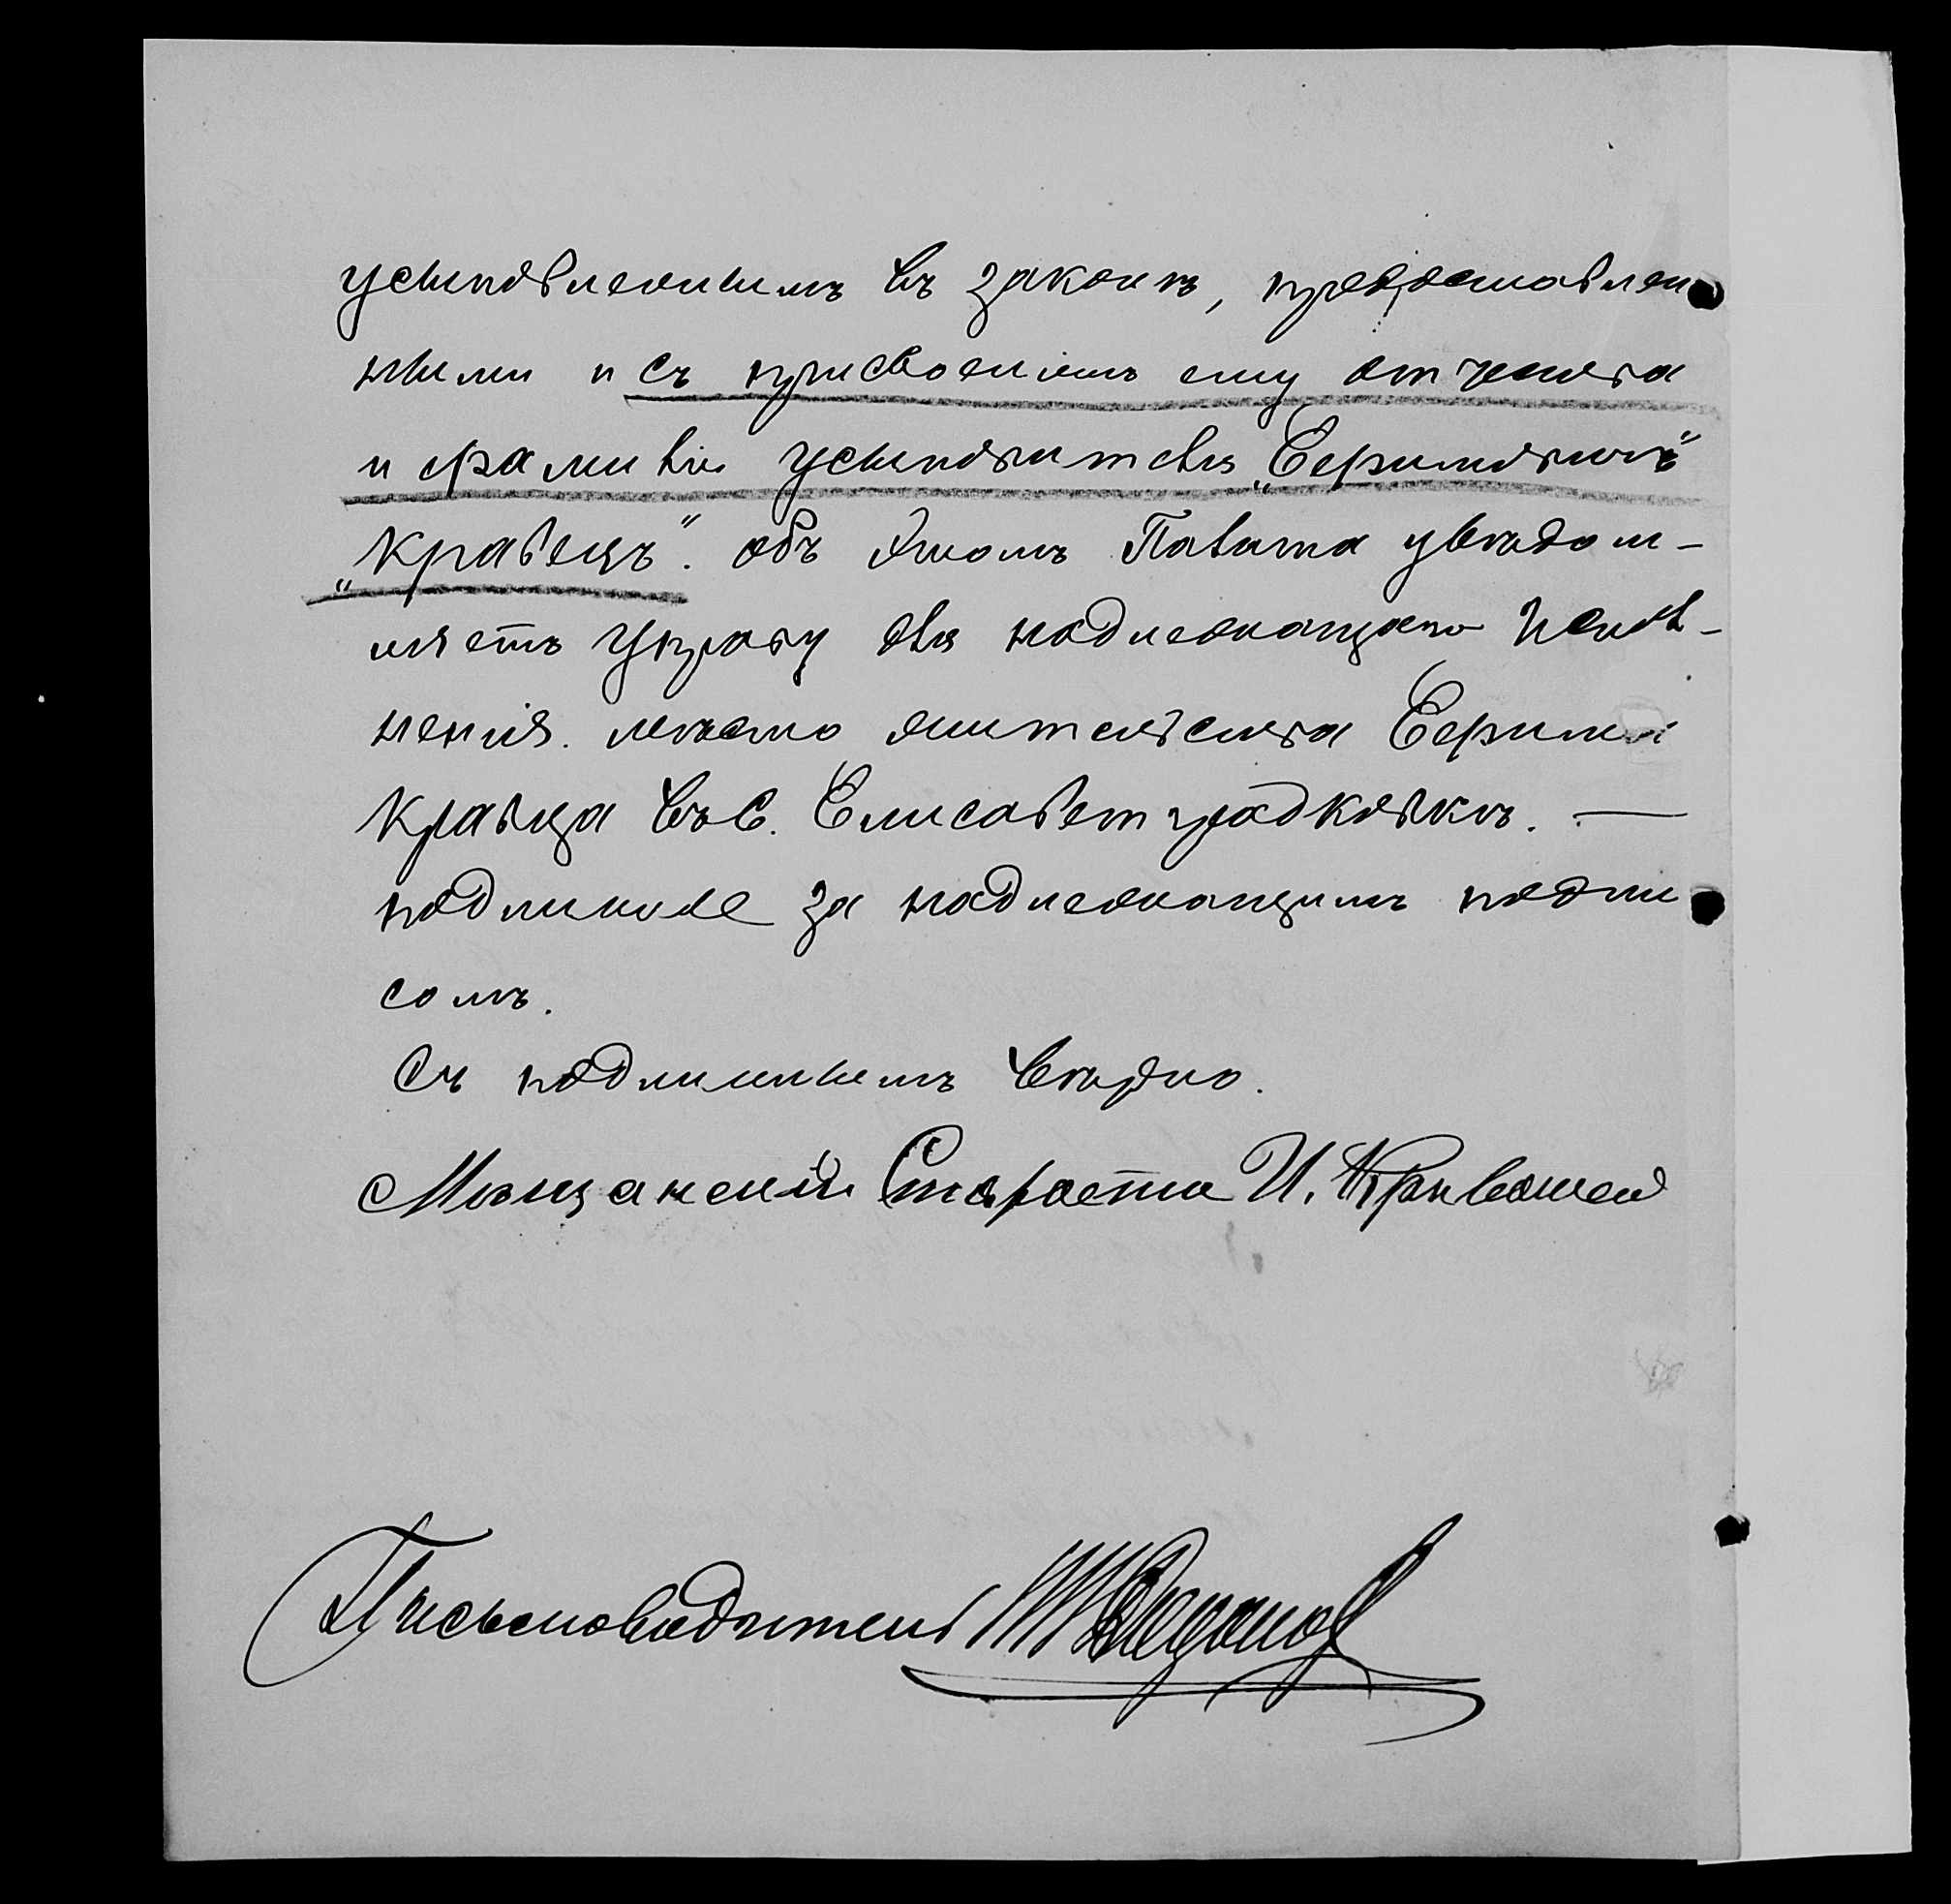 усыновленнымъ въ законѣ, предоставлен
ными и съ присвоеніемъ ему отчества
и фамиліи усыновителя „Ефимовичъ“
„Кравецъ“. Объ этомъ Палата увѣдом-
ляетъ Управу для надлежащаго испол-
ненія. Мѣсто жительства Ефима
Кравца въ С. Елисаветградковкѣ. —
подлинное за надлежащимъ подпи
сомъ.
Съ подлиннымъ вѣрно.
Мѣщанскій Староста И.
Письмоводитель